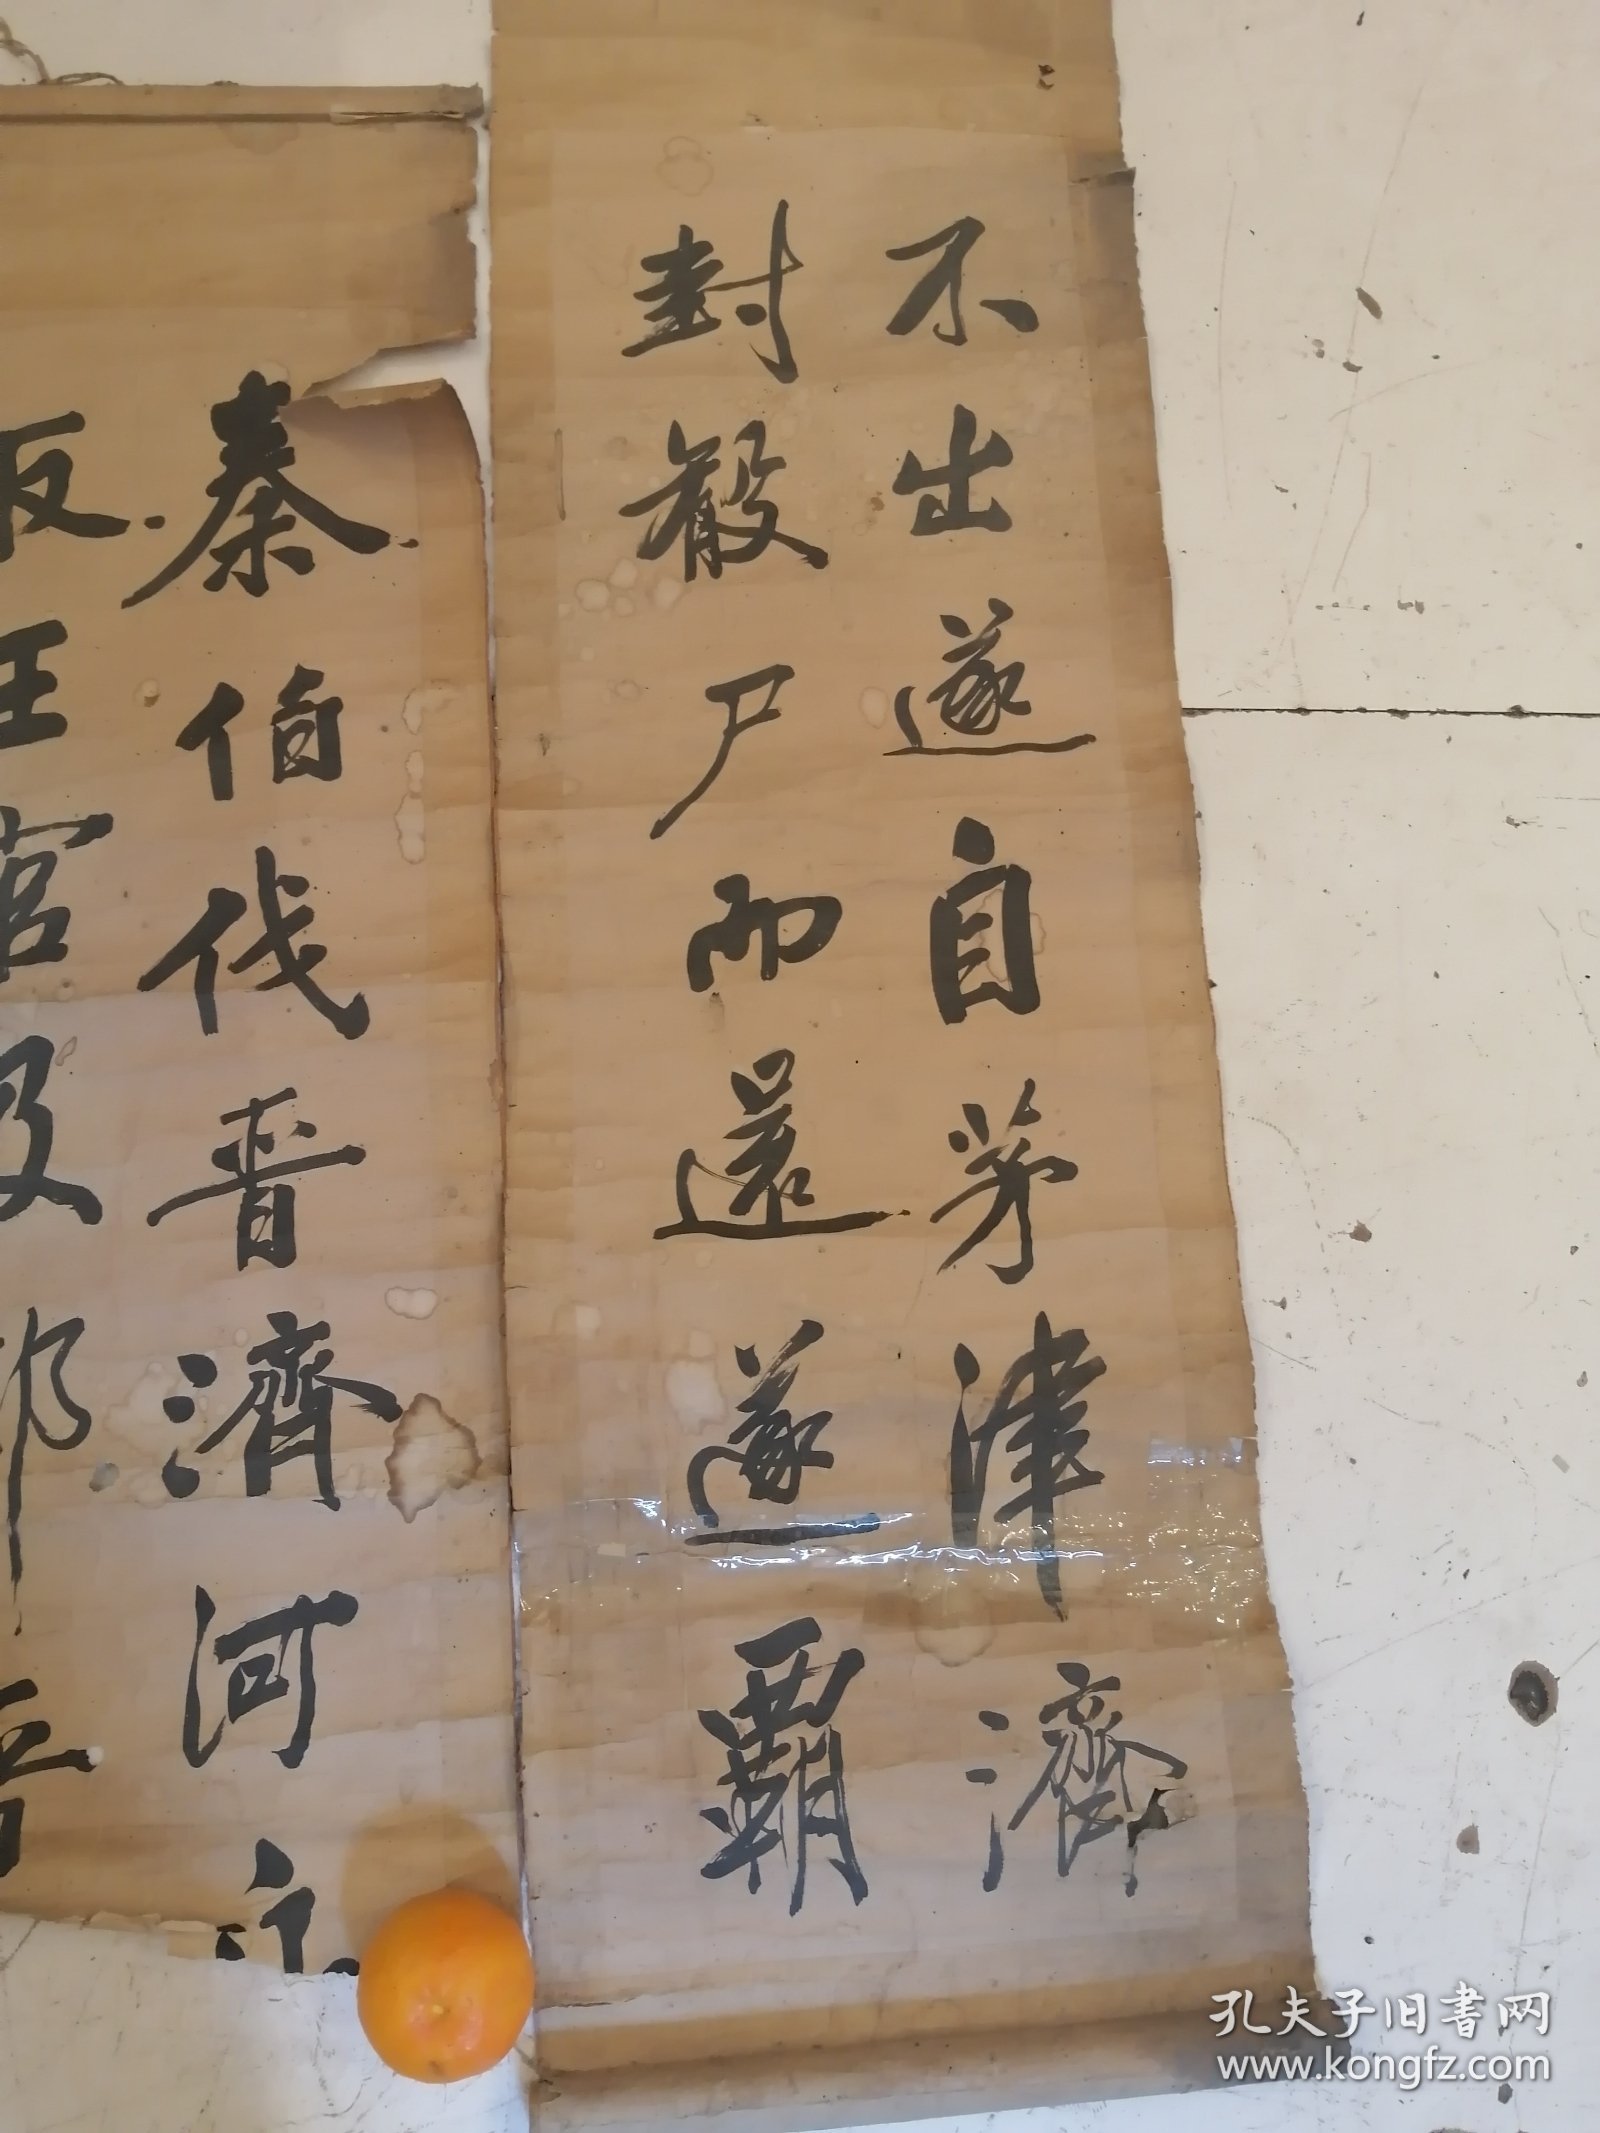 不出遂自茅津濟
封殽尸而還遂霸
秦伯伐晉濟河
王官及郊晉
孔夫子旧书网
www.kongfz.com